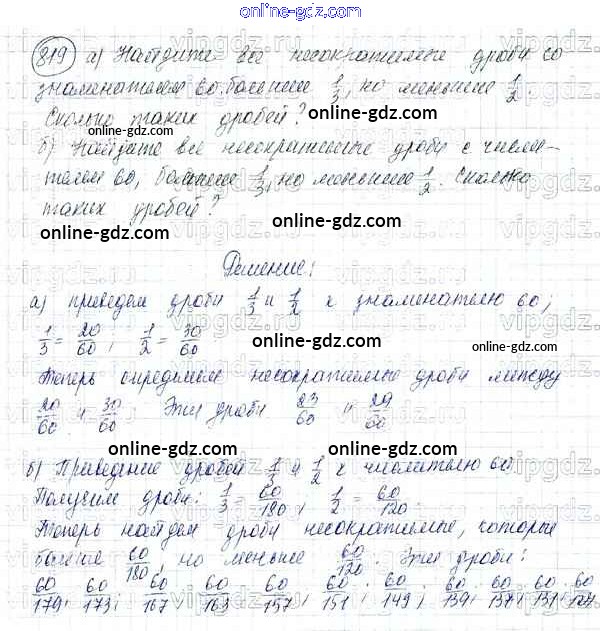 online-gdz.com
819 а) Найдите все несократимые дроби со
знаменателем 60, больше 1/3, но меньше 1/2.
online-gdz.com
Сколько таких дробей?
online-gdz.com
б) Найдите все несократимые дроби с числи-
телем 60, больше 1/3, но меньше 1/2. Сколько
таких дробей?
online-gdz.com
online-gdz.com
Решение:
а) приведем дроби 1/3 и 1/2 к знаменателю 60;
online-gdz.com
1/3 = 20/60; 1/2 = 30/60
online-gdz.com
Теперь определим несократимые дроби между
20/60 и 30/60. Эти дроби 23/60 и 29/60
online-gdz.com
online-gdz.com
б) Приведение дробей 1/3 и 1/2 к числителю 60.
Получим дроби: 1/3 = 60/180, 1/2 = 60/120.
online-gdz.com
Теперь найдем дроби несократимые, которые
больше 60/180, но меньше 60/120. Эти дроби:
online-gdz.com
60/179; 60/173; 60/167; 60/163; 60/157; 60/151; 60/149; 60/139; 60/137; 60/131; 60/127